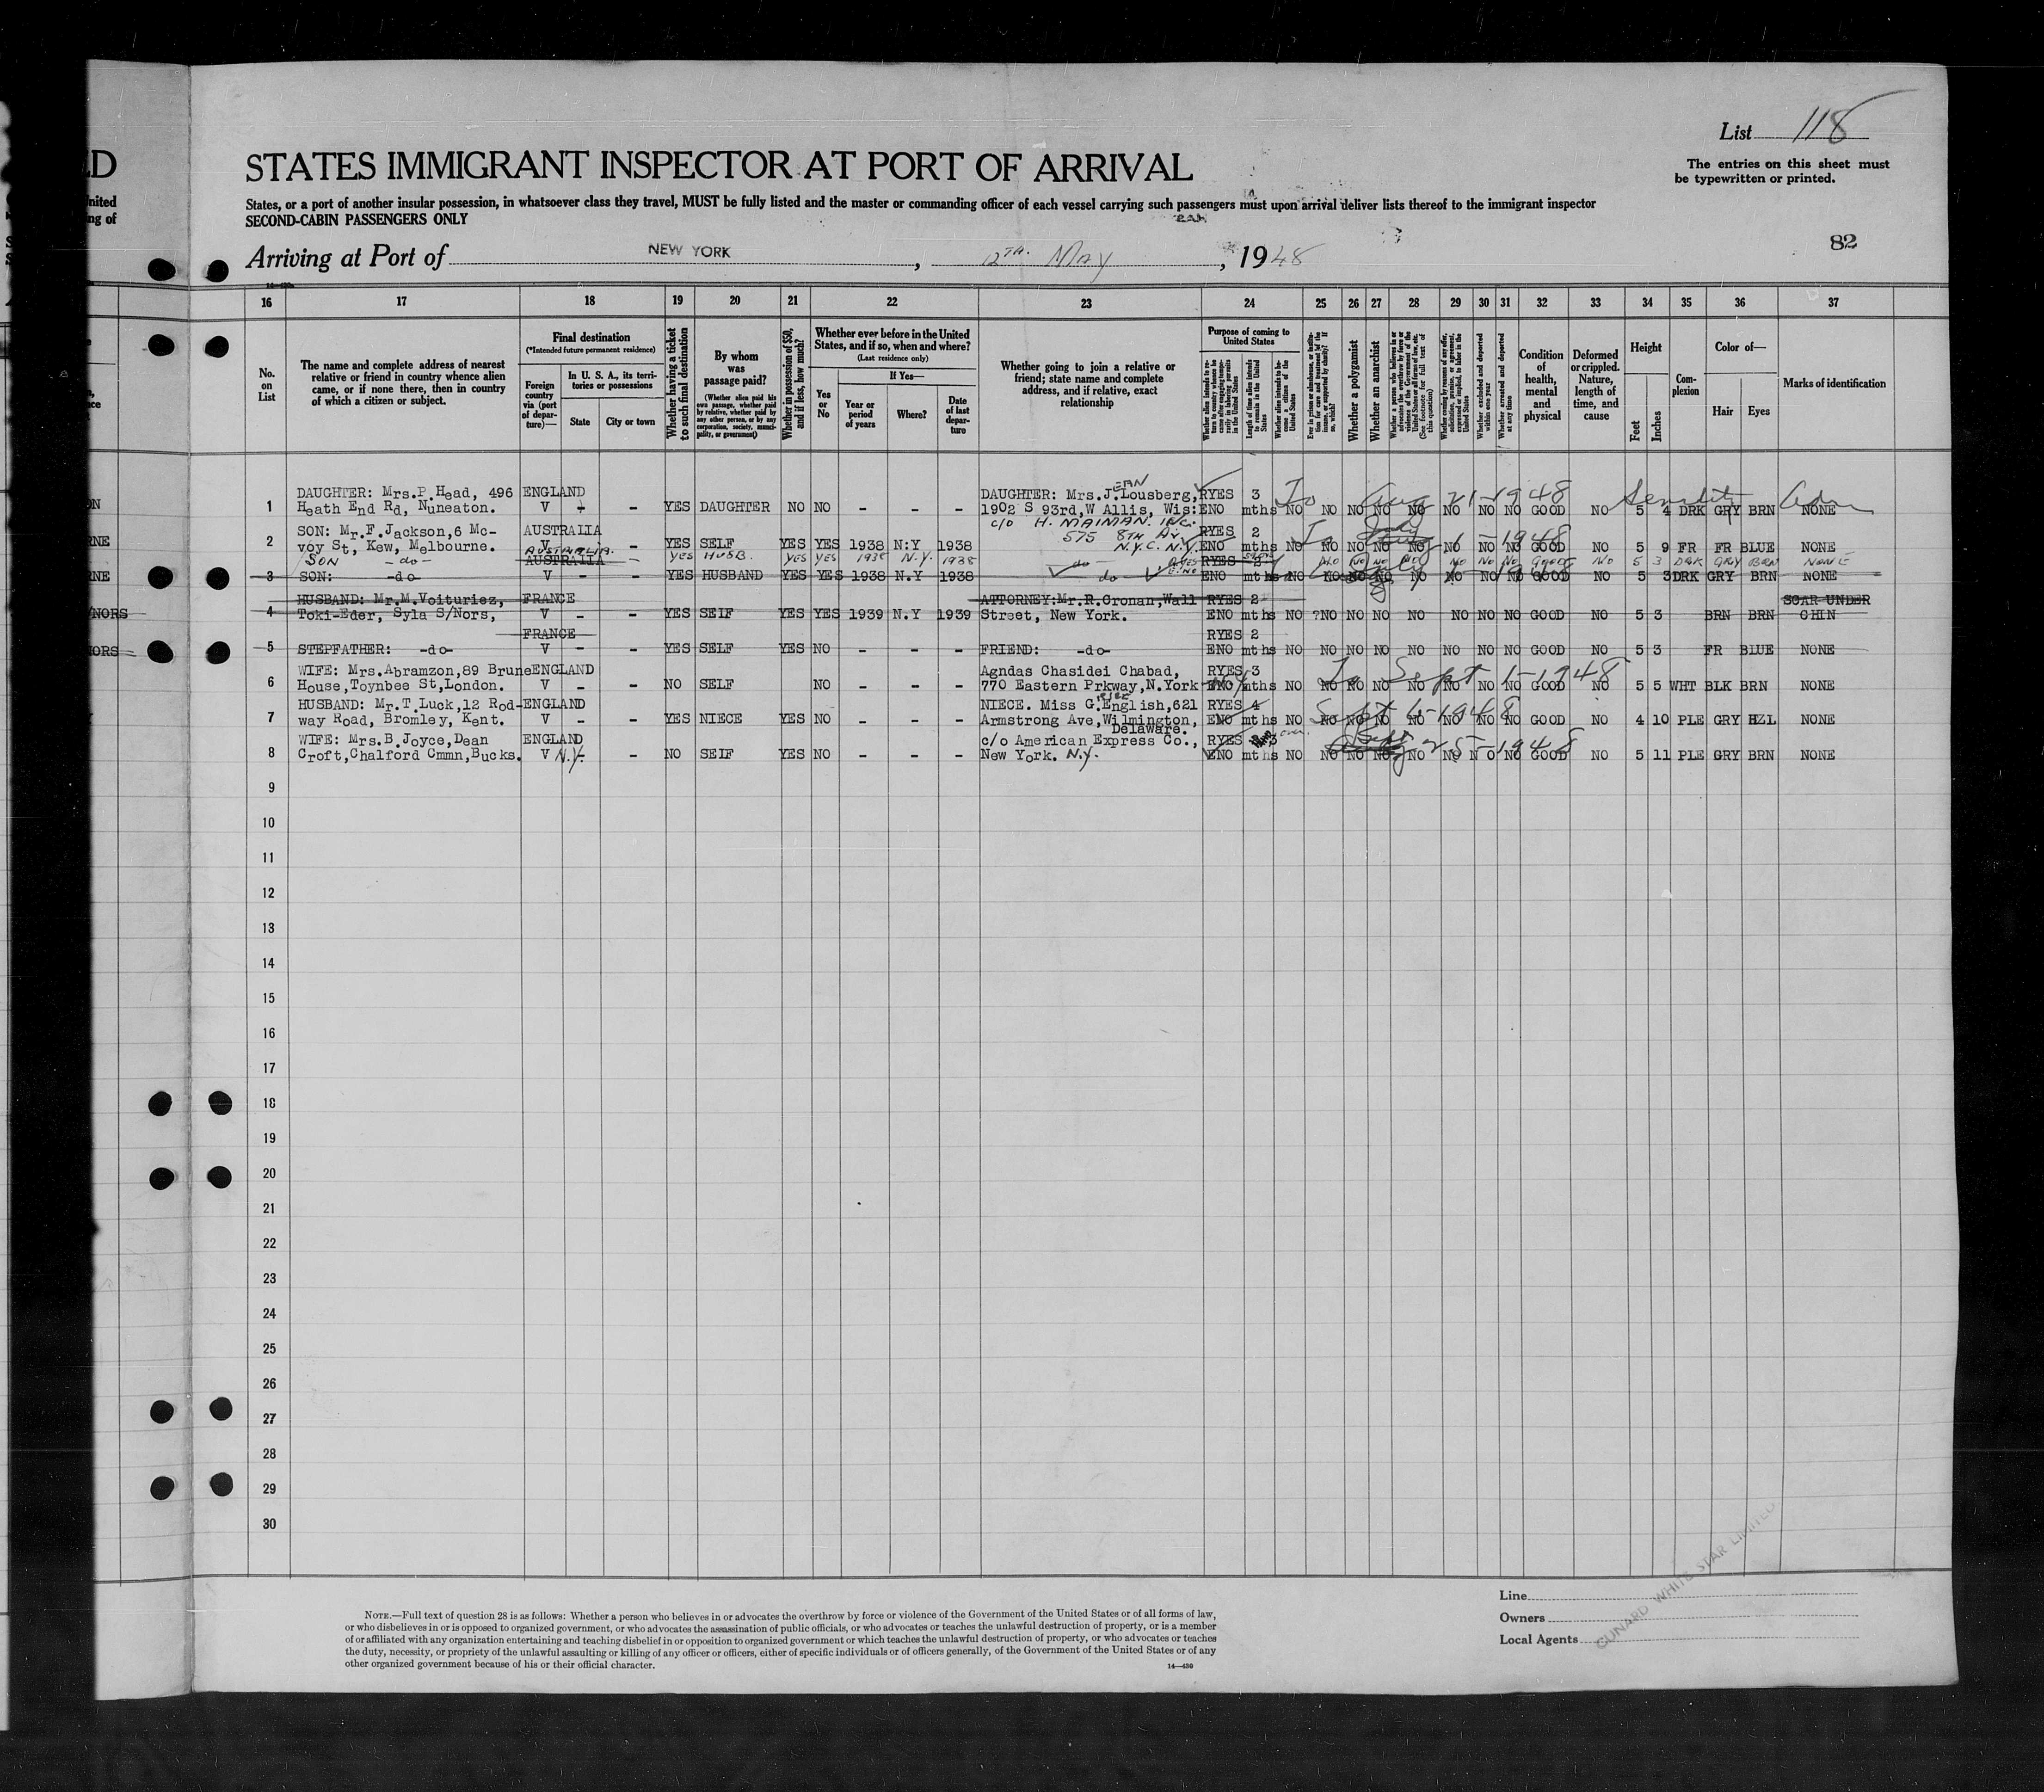 List 118
The entries on this sheet must
be typewritten or printed.
LD
STATES IMMIGRANT INSPECTOR AT PORT OF ARRIVAL
States, or a port of another insular possession, in whatsoever class they travel, MUST be fully listed and the master or commanding officer of each vessel carrying such passengers must upon arrival deliver lists thereof to the immigrant inspector
SECOND-CABIN PASSENGERS ONLY
82
Arriving at Port of NEW YORK, 12TH. MAY, 1948
16 17 18 19 20 21 22 23 24 25 26 27 28 29 30 31 32 33 34 35 36 37
No. on List
The name and complete address of nearest relative or friend in country whence alien came, or if none there, then in country of which a citizen or subject.
Final destination
(*Intended future permanent residence)
Foreign country via (port of departure)—
In U. S. A., its territories or possessions
State
City or town
Whether having a ticket to such final destination
By whom was passage paid?
(Whether alien paid his own passage, whether paid by relative, whether paid by any other person, or by any corporation, society, municipality, or government)
Whether in possession of $50, and if less, how much?
Whether ever before in the United States, and if so, when and where?
(Last residence only)
Yes or No
If Yes—
Year or period of years
Where?
Date of last departure
Whether going to join a relative or friend; state name and complete address, and if relative, exact relationship
Purpose of coming to United States
Length of time alien intends to remain in the United States
Whether alien intends to become a citizen of the United States
Whether a polygamist
Whether an anarchist
(See footnote for full text of this question)
Whether excluded and deported within one year
Whether arrested and deported at any time
Condition of health, mental and physical
Deformed or crippled. Nature, length of time, and cause
Height
Feet
Inches
Complexion
Color of—
Hair
Eyes
Marks of identification
DAUGHTER: Mrs.P.Head, 496 ENGLAND DAUGHTER: Mrs.J.EAN Lousberg, RYES 3
1 Heath End Rd, Nuneaton. V - - YES DAUGHTER NO NO - - - 1902 S 93rd,W Allis, Wis: ENO mths NO NO NO NO NO NO NO NO GOOD NO 5 4 DRK GRY BRN NONE
To Aug 21-1948
c/o H. MAIMAN. INC.
SON: Mr.F.Jackson,6 Mc- AUSTRALIA 575 8TH AV. RYES 2
2 voy St, Kew, Melbourne. V - - YES SELF YES YES 1938 N:Y 1938 N.Y.C. N.Y. ENO mths NO NO NO NO NO NO NO NO GOOD NO 5 9 FR FR BLUE NONE
SON -do- AUSTRALIA. YES HUSB. YES YES 1938 N.Y. 1938 -do- NO NO NO NO NO NO NO GOOD NO 5 3 DRK GRY BRN NONE
AUSTRALIA RYES 2
3 SON: -do- V - - YES HUSBAND YES YES 1938 N.Y 1938 do ENO mths NO NO NO NO NO NO NO NO GOOD NO 5 3 DRK GRY BRN NONE
HUSBAND: Mr.M.Voituriez, FRANCE ATTORNEY:Mr.R.Cronan,Wall RYES 2 SCAR UNDER
4 Toki-Eder, Syla S/Nors, V - - YES SELF YES YES 1939 N.Y 1939 Street, New York. ENO mths NO ?NO NO NO NO NO NO NO GOOD NO 5 3 BRN BRN CHIN
FRANCE RYES 2
5 STEPFATHER: -do- V - - YES SELF YES NO - - - FRIEND: -do- ENO mths NO NO NO NO NO NO NO NO GOOD NO 5 3 FR BLUE NONE
WIFE: Mrs.Abramzon,89 Brune ENGLAND Agndas Chasidei Chabad, RYES 3
6 House,Toynbee St,London. V - - NO SELF NO - - - 770 Eastern Prkway,N.York ENO mths NO NO NO NO NO NO NO NO GOOD NO 5 5 WHT BLK BRN NONE
To Sept 1-1948
HUSBAND: Mr.T.Luck,12 Rod- ENGLAND NIECE. Miss G.English,621 RYES 4
7 way Road, Bromley, Kent. V - - YES NIECE YES NO - - - Armstrong Ave,Wilmington, ENO mths NO NO NO NO NO NO NO NO GOOD NO 4 10 PLE GRY HZL NONE
Delaware.
WIFE: Mrs.B.Joyce,Dean ENGLAND c/o American Express Co., RYES 3
8 Croft,Chalford Cmmn,Bucks. V N.Y. - NO SELF YES NO - - - New York. N.Y. ENO mths NO NO NO NO NO NO NO NO GOOD NO 5 11 PLE GRY BRN NONE
9
10
11
12
13
14
15
16
17
18
19
20
21
22
23
24
25
26
27
28
29
30
Line
Owners
Local Agents
CUNARD WHITE STAR LIMITED
NOTE.—Full text of question 28 is as follows: Whether a person who believes in or advocates the overthrow by force or violence of the Government of the United States or of all forms of law,
or who disbelieves in or is opposed to organized government, or who advocates the assassination of public officials, or who advocates or teaches the unlawful destruction of property, or is a member
of or affiliated with any organization entertaining and teaching disbelief in or opposition to organized government or which teaches the unlawful destruction of property, or who advocates or teaches
the duty, necessity, or propriety of the unlawful assaulting or killing of any officer or officers, either of specific individuals or of officers generally, of the Government of the United States or of any
other organized government because of his or their official character.
14—430